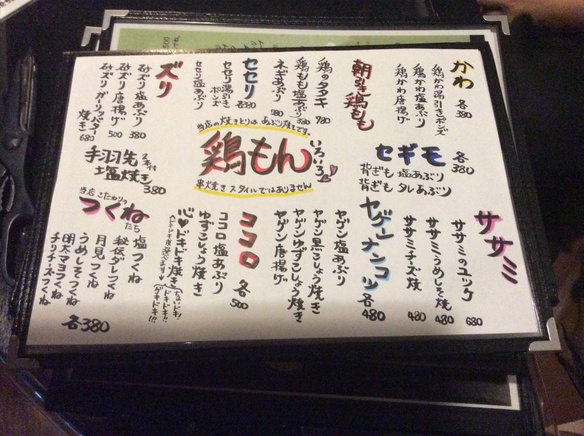 かわ
各380
鶏かわ湯引きポンズ
鶏かわ塩あぶり
鶏かわ唐揚げ
朝引き鶏もも
鶏のタタキ
780
鶏もも塩あぶり
780
ネギあぶり
980
セセリ
各380
セセリ湯引きポンズ
セセリ塩あぶり
ズリ
砂ズリ塩あぶり
380
砂ズリ唐揚げ
500
砂ズリガーリックバター焼き
680
当店の焼きとりは、あぶり焼きです。
鶏もん
いろいろ
串焼きスタイルではありません
セギモ
各380
背ぎも塩あぶり
背ぎもタレあぶり
手羽先
塩焼き
380
ササミ
ササミのユッケ
680
ササミうめしそ焼
480
ササミチーズ焼
480
ヤゲンナンコツ
各480
ヤゲン塩あぶり
ヤゲン黒こしょう焼き
ヤゲンゆずこしょう焼き
ヤゲン唐揚げ
ココロ
各500
ココロ塩あぶり
ゆずこしょう焼き
ドキドキ焼き
当店こだわりの
つくねたち
塩つくね
秘伝ダレつくね
月見つくね
うめしそつくね
明太マヨつくね
チーズつくね
各380